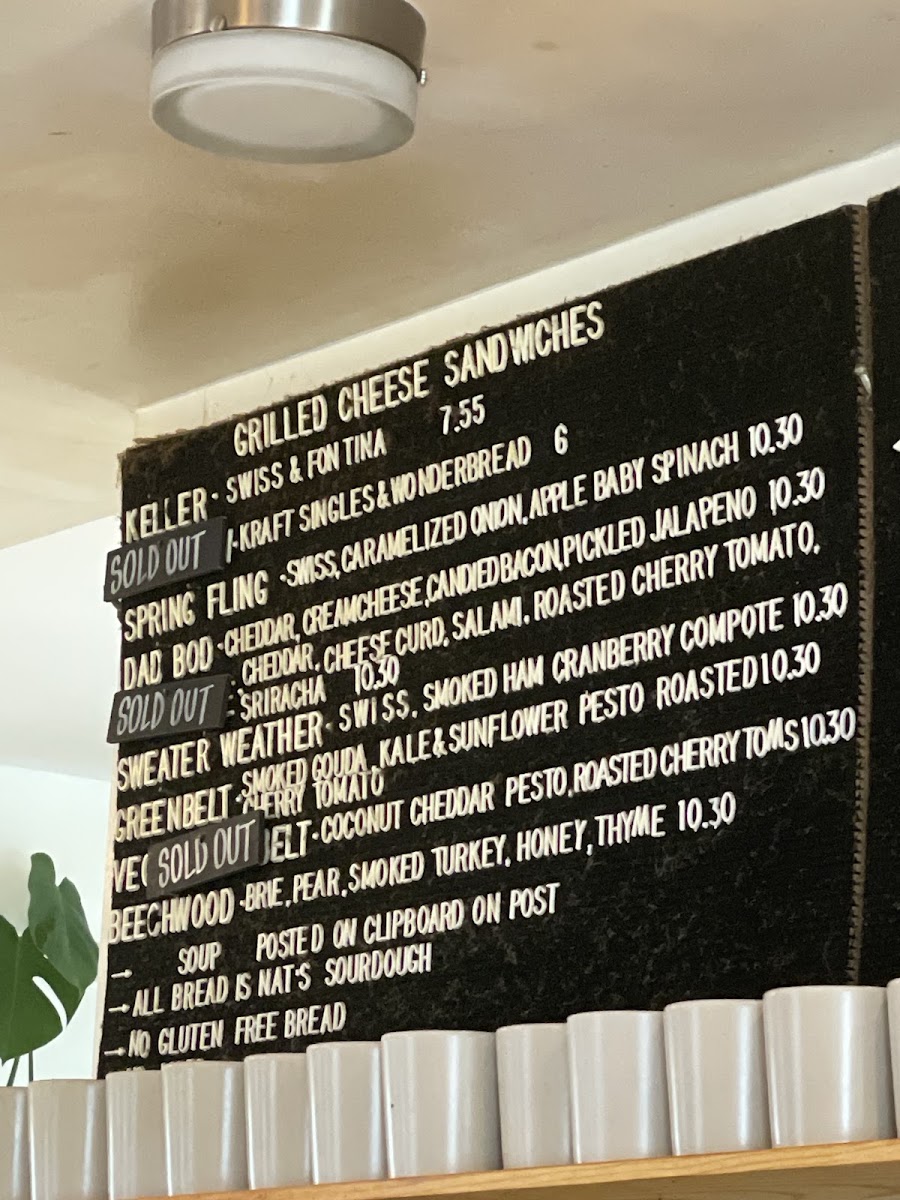 GRILLED CHEESE SANDWICHES
KELLER - SWISS & FONTINA 7.55
SOLD OUT -KRAFT SINGLES & WONDERBREAD 6
SPRING FLING -SWISS, CARAMELIZED ONION, APPLE BABY SPINACH 10.30
DAD BOD -CHEDDAR, CREAMCHEESE, CANDIED BACON, PICKLED JALAPENO 10.30
SOLD OUT : CHEDDAR, CHEESE CURD, SALAMI, ROASTED CHERRY TOMATO,
SRIRACHA 10.30
SWEATER WEATHER- SWISS, SMOKED HAM CRANBERRY COMPOTE 10.30
GREENBELT -SMOKED GOUDA, KALE & SUNFLOWER PESTO ROASTED 10.30
CHERRY TOMATO
VEG SOLD OUT BELT-COCONUT CHEDDAR PESTO, ROASTED CHERRY TOMS 10.30
BEECHWOOD -BRIE, PEAR, SMOKED TURKEY, HONEY, THYME 10.30
→ SOUP POSTED ON CLIPBOARD ON POST
→ALL BREAD IS NAT'S SOURDOUGH
→NO GLUTEN FREE BREAD